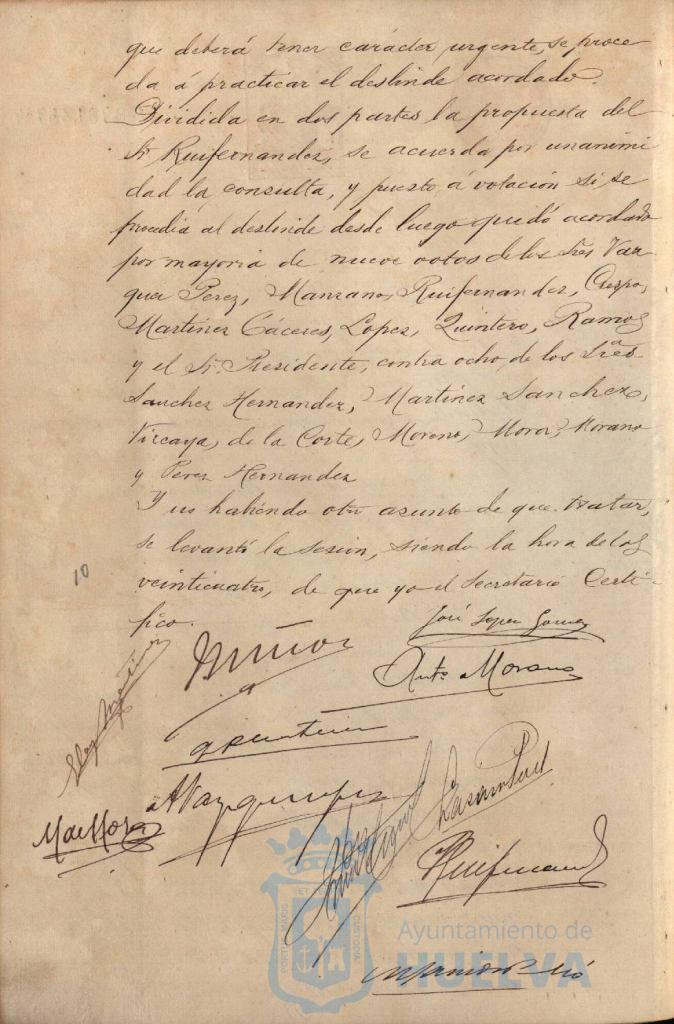 que deberá tener carácter urgente, se proce
da á practicar el deslinde acordado.
Dividida en dos partes la propuesta del
Sr. Ruifernandez, se acuerda por unanimi
dad la consulta, y puesto á votación si se
procedia al deslinde desde luego quedó acordado
por mayoria de nueve votos de los Sres Vaz
quez Perez, Manzano, Ruifernandez, Crespo,
Martinez Cáceres, Lopez, Quintero, Ramos
y el Sr. Presidente, contra ocho, de los Sres
Sanchez Hernandez, Martinez Sanchez,
Vizcaya, de la Corte, Moreno, Mora, Morano
y Perez Hernandez
Y no habiendo otro asunto de que tratar,
se levantó la sesion, siendo la hora de las
veinticuatro, de que yo el Secretario Certi-
fico.
10
José Lopez Gomez
Muñoz
Anto. Morano
A Vazquez Perez
M de Mora
Ruifernandez
PORTUS MARIS
ET TERRAE
CUSTODIA
Ayuntamiento de
HUELVA